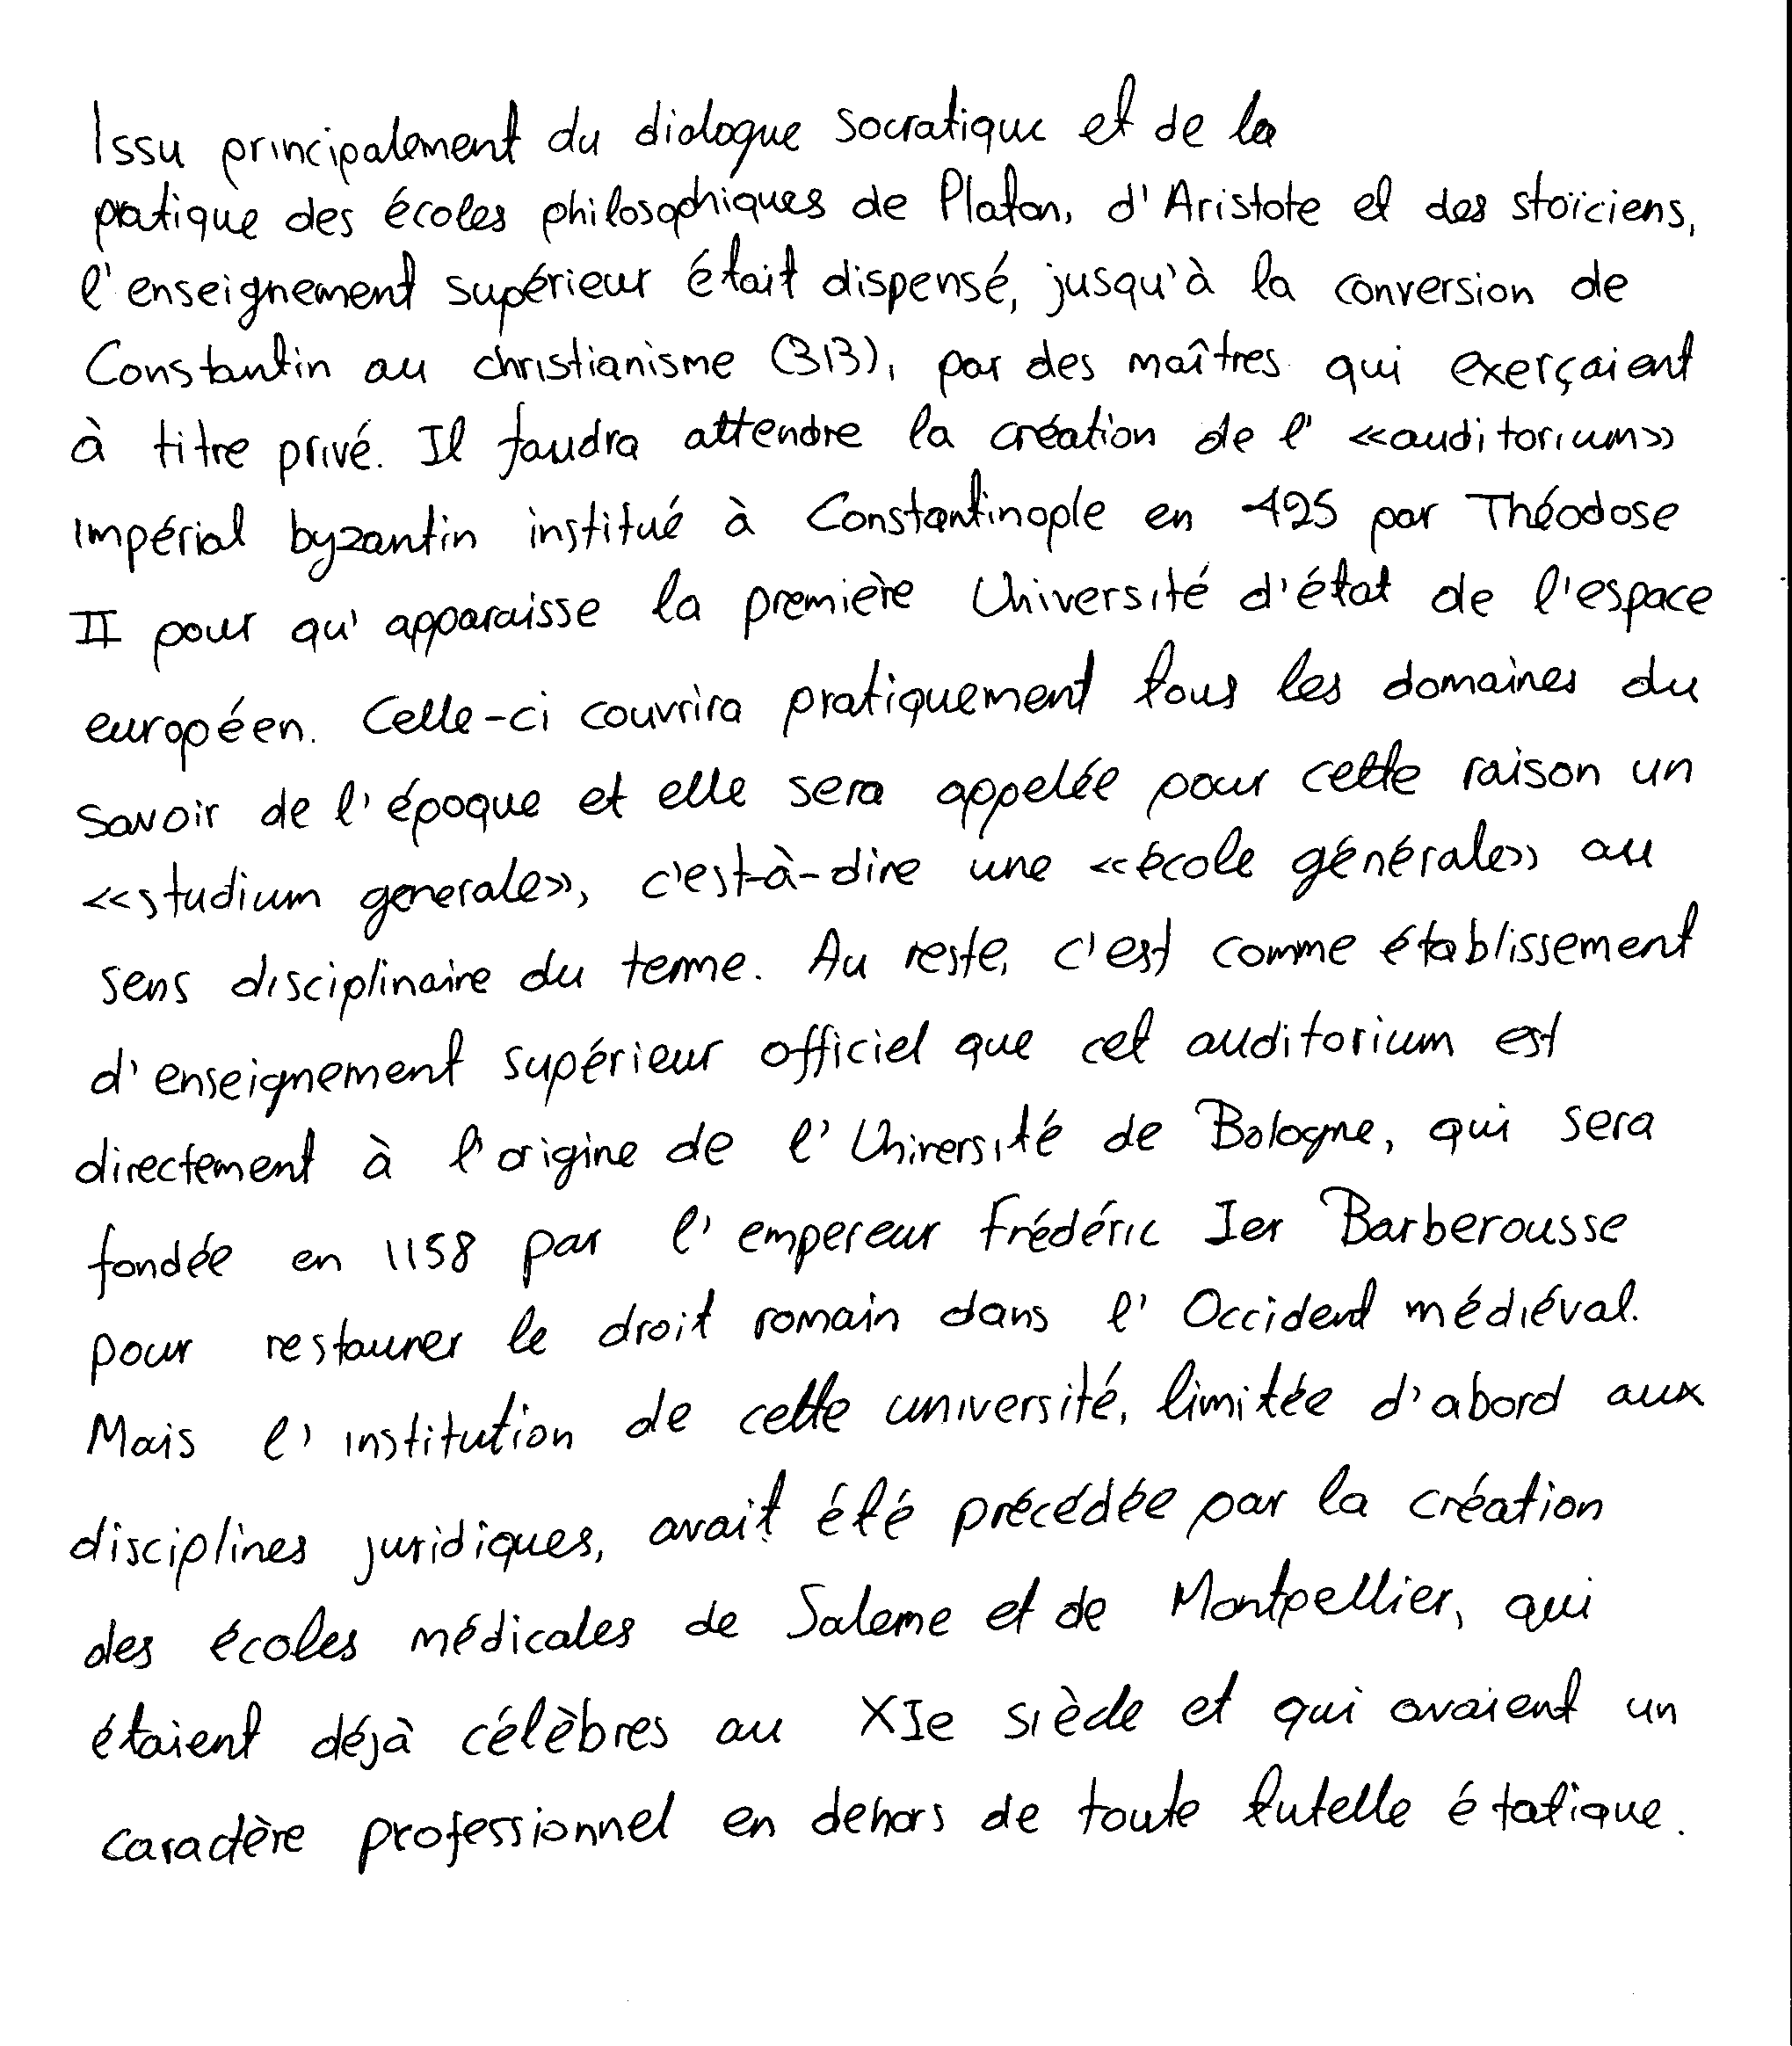 Issu principalement du dialogue socratique et de la
pratique des écoles philosophiques de Platon, d'Aristote et des stoïciens,
l'enseignement supérieur était dispensé, jusqu'à la conversion de
Constantin au christianisme (313), par des maîtres qui exerçaient
à titre privé. Il faudra attendre la création de l' «auditorium»
impérial byzantin institué à Constantinople en 425 par Théodose
II pour qu'apparaisse la première Université d'état de l'espace
européen. Celle-ci couvrira pratiquement tous les domaines du
savoir de l'époque et elle sera appelée pour cette raison un
«studium generale», c'est-à-dire une «école générale» au
sens disciplinaire du terme. Au reste, c'est comme établissement
d'enseignement supérieur officiel que cet auditorium est
directement à l'origine de l'Université de Bologne, qui sera
fondée en 1158 par l'empereur Frédéric Ier Barberousse
pour restaurer le droit romain dans l'Occident médiéval.
Mais l'institution de cette université, limitée d'abord aux
disciplines juridiques, avait été précédée par la création
des écoles médicales de Salerne et de Montpellier, qui
étaient déjà célèbres au XIe siècle et qui avaient un
caractère professionnel en dehors de toute tutelle étatique.